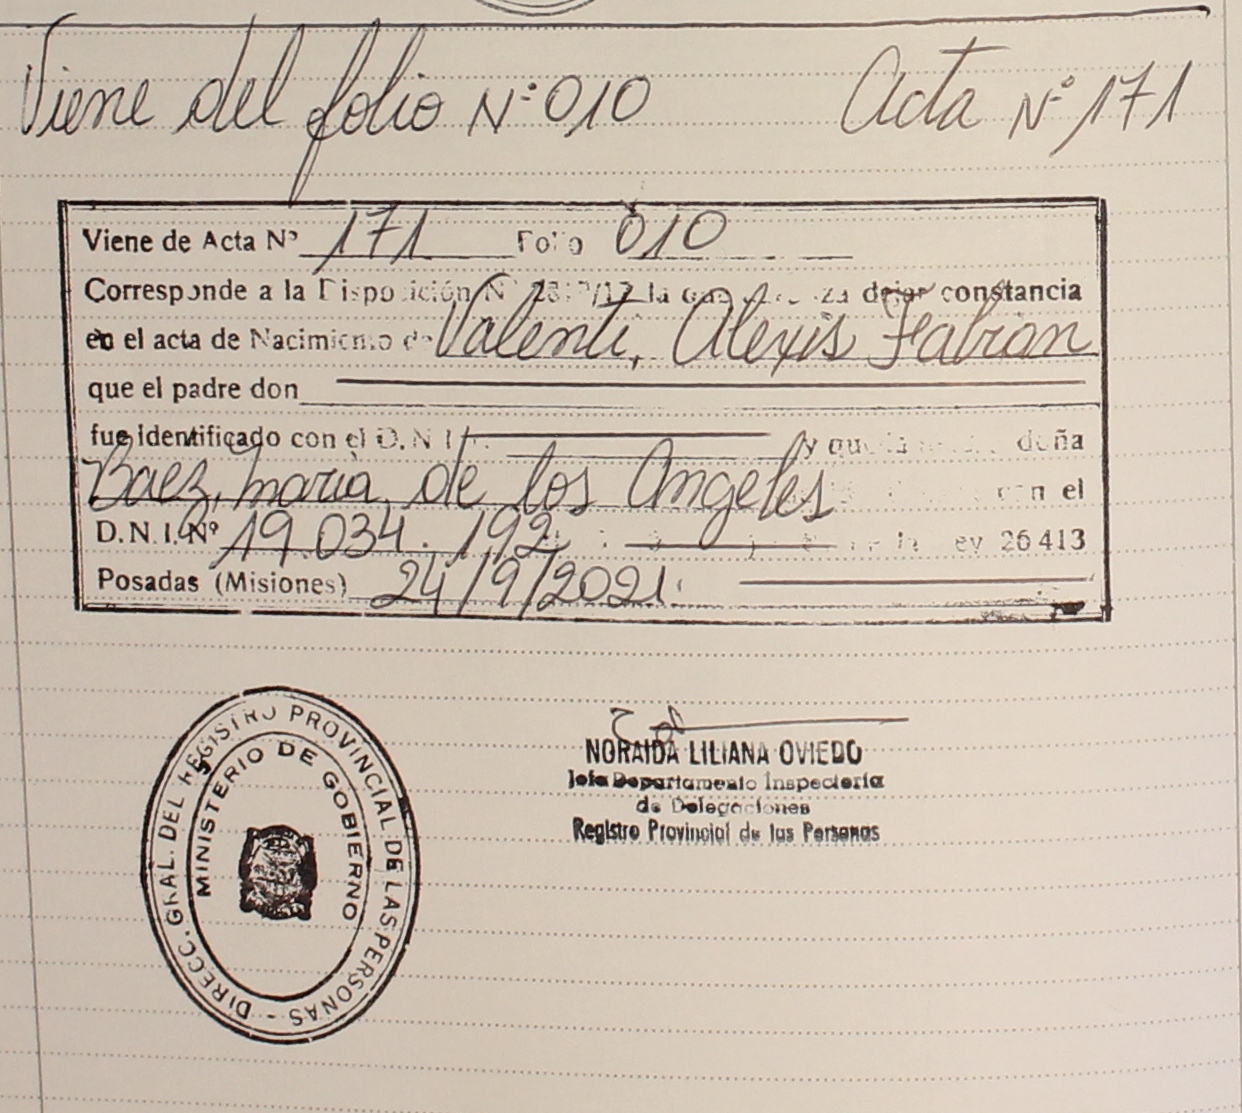 Viene del folio N° 010 Acta N° 171
Viene de Acta N° 171 Folio 010
Corresponde a la Disposición N° la dejar constancia
en el acta de Nacimiento de Valenti, Alexis Fabian
que el padre don
fue identificado con el D.N.I. y que la doña
Baez, maria de los Angeles con el
D.N.I. Nº 19.034.192 ley 26413
Posadas (Misiones) 24/9/2021.
DIRECC. GRAL. DEL REGISTRO PROVINCIAL DE LAS PERSONAS -
MINISTERIO DE GOBIERNO
NORAIDA LILIANA OVIEDO
Jefa Departamento Inspectoria
de Delegaciones
Registro Provincial de las Personas